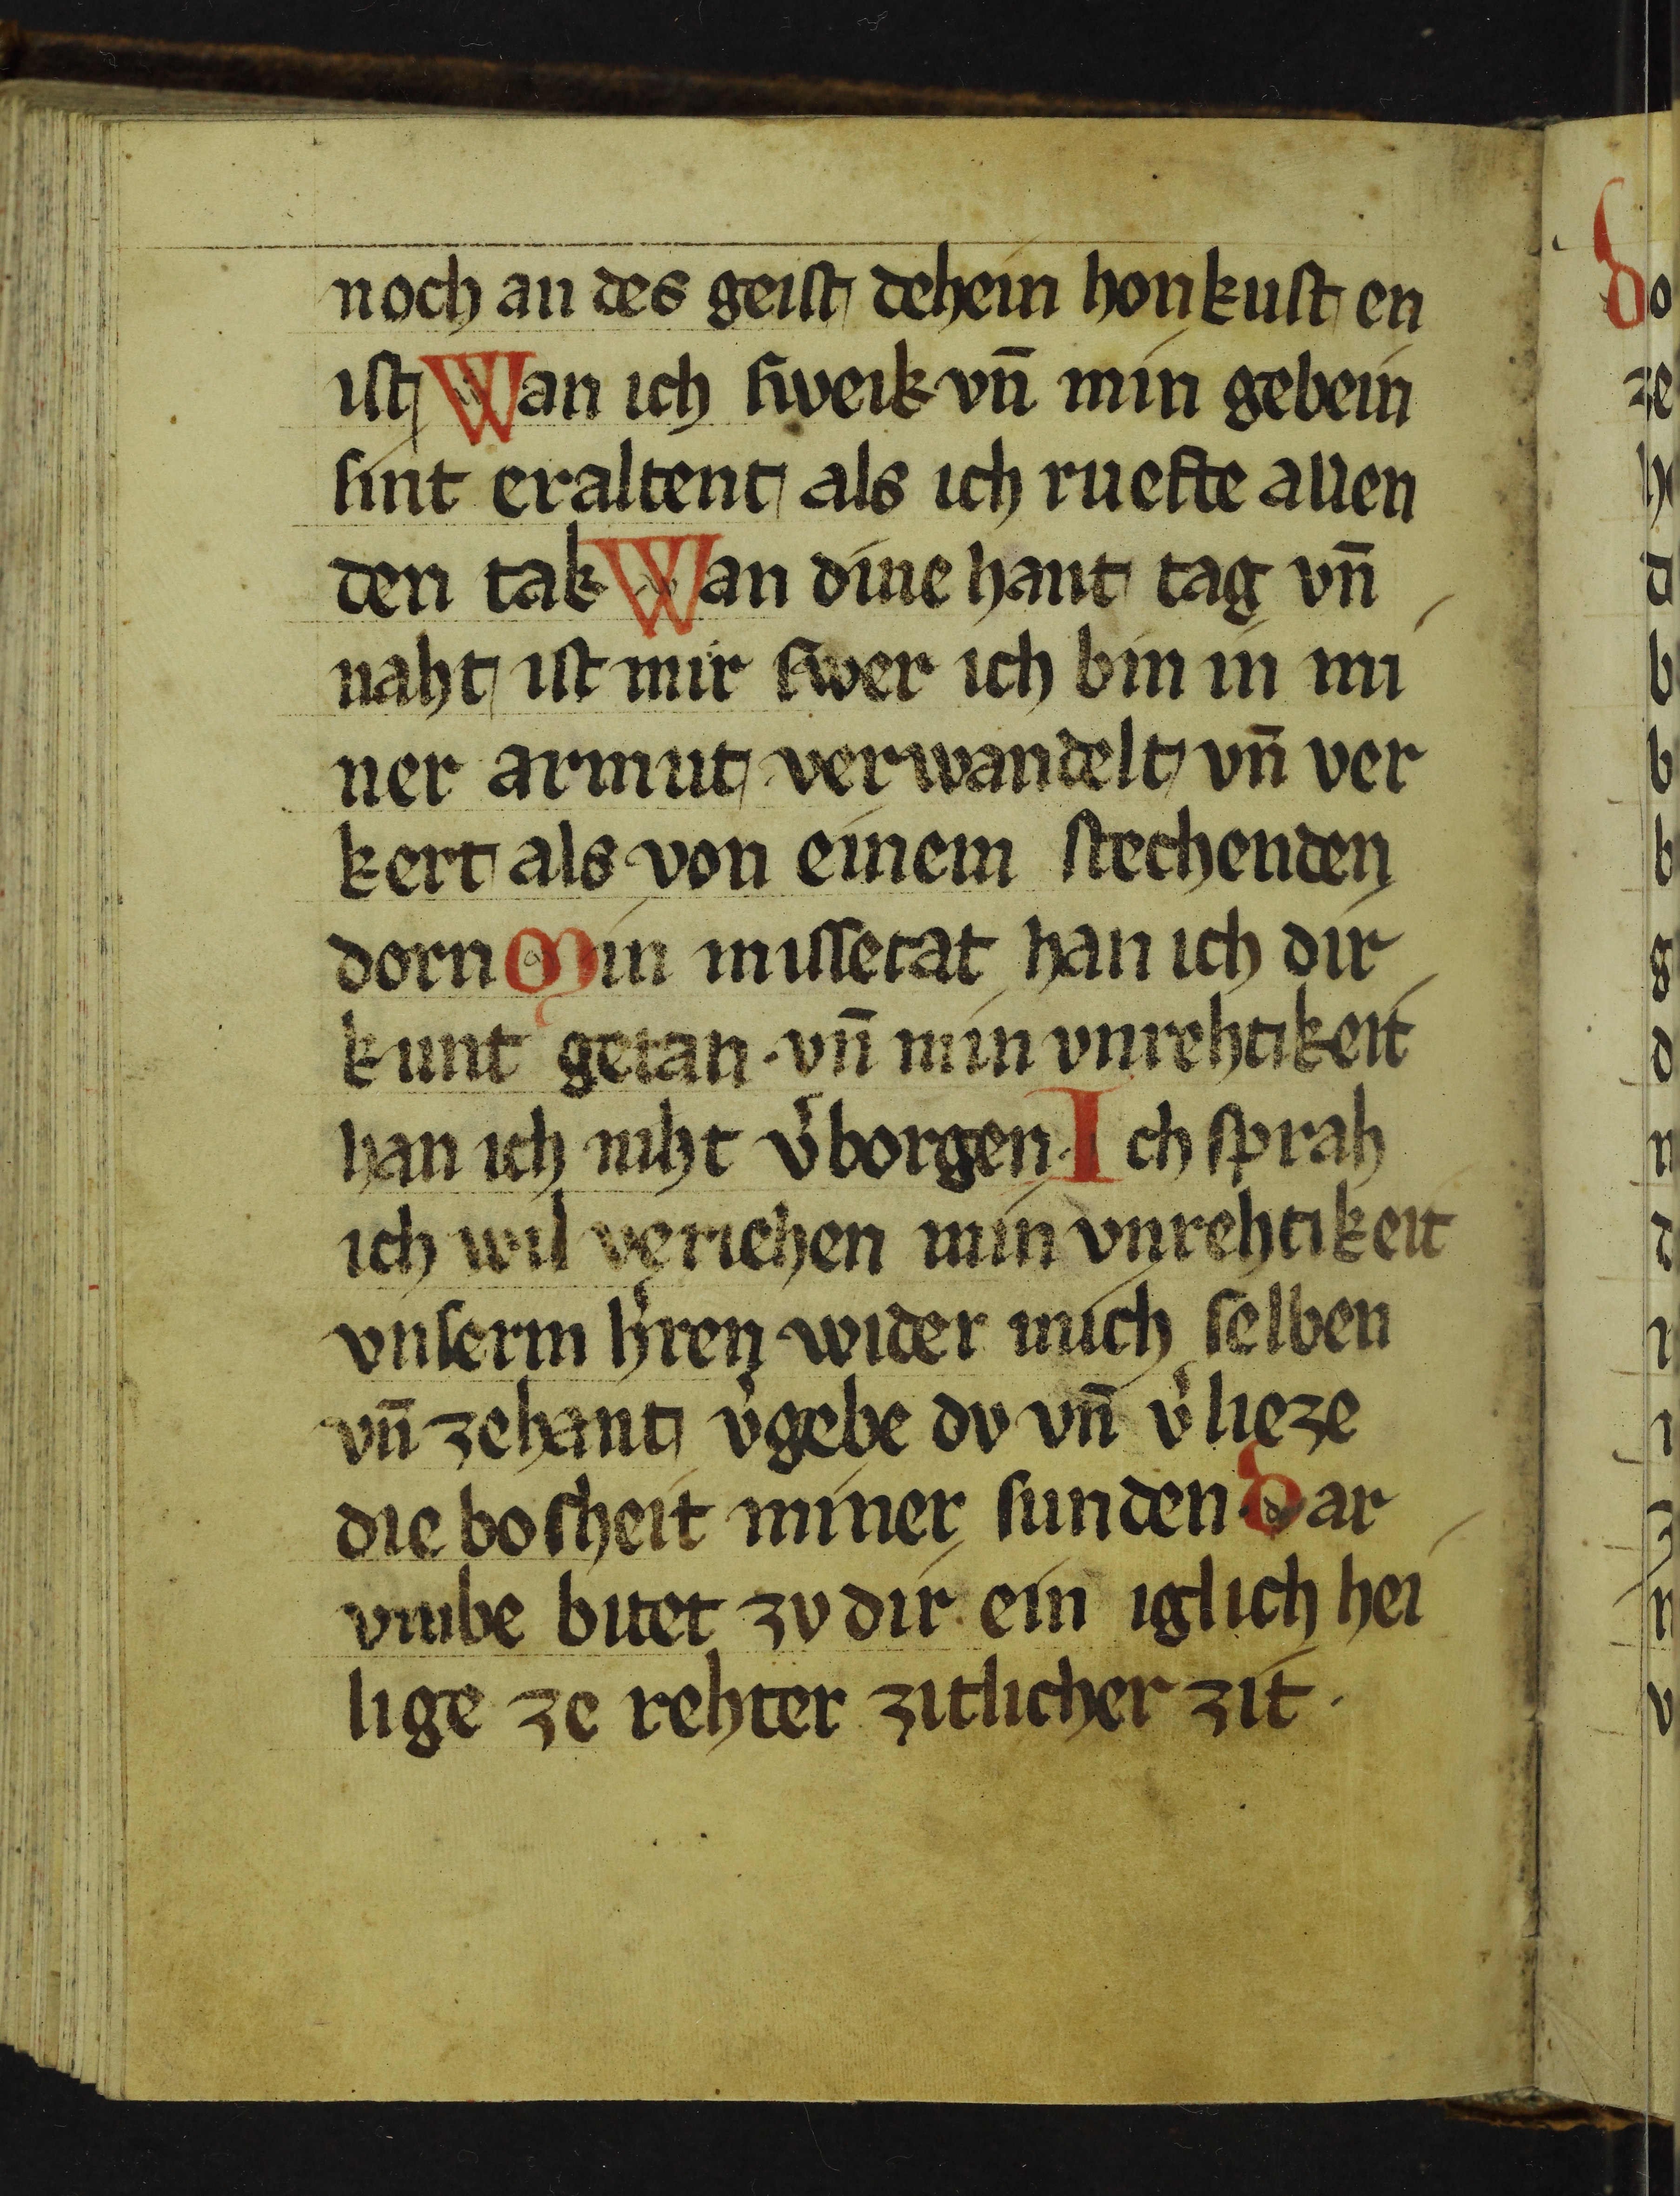 noch an des geist dehein honkust en
ist Wan ich sweik vn̄ min gebein
sint eraltent als ich ruefte allen
den tak Wan dine hant tag vn̄
naht ist mir swer ich bin in mi
ner armut verwandelt vn̄ ver
kert als von einem stechenden
dorn Min missetat han ich dir
kunt getan · vn̄ min vnrehtikeit
han ich niht v͛borgen · Ich sprah
ich wil veriehen min vnrehtikeit
vnserm h͛ren wider mich selben
vn̄ zehant v͛gebe dv vn̄ v͛lieze
die bosheit miner sunden · Dar
vmbe bitet zv dir ein iglich hei
lige ze rehter zitlicher zit ·